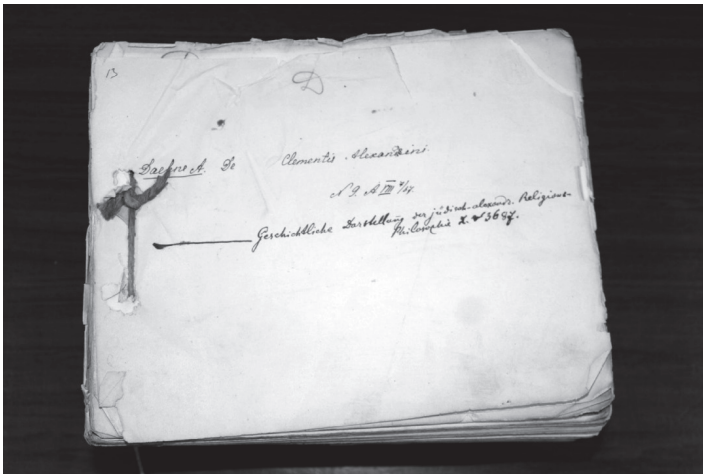 13
D
Daehne A. De Clementis Alexandrini
N 9. A VIII 4/17.
Geschichtliche Darstellung der jüdisch-alexandr. Religions-
Philosophie X. 3687.